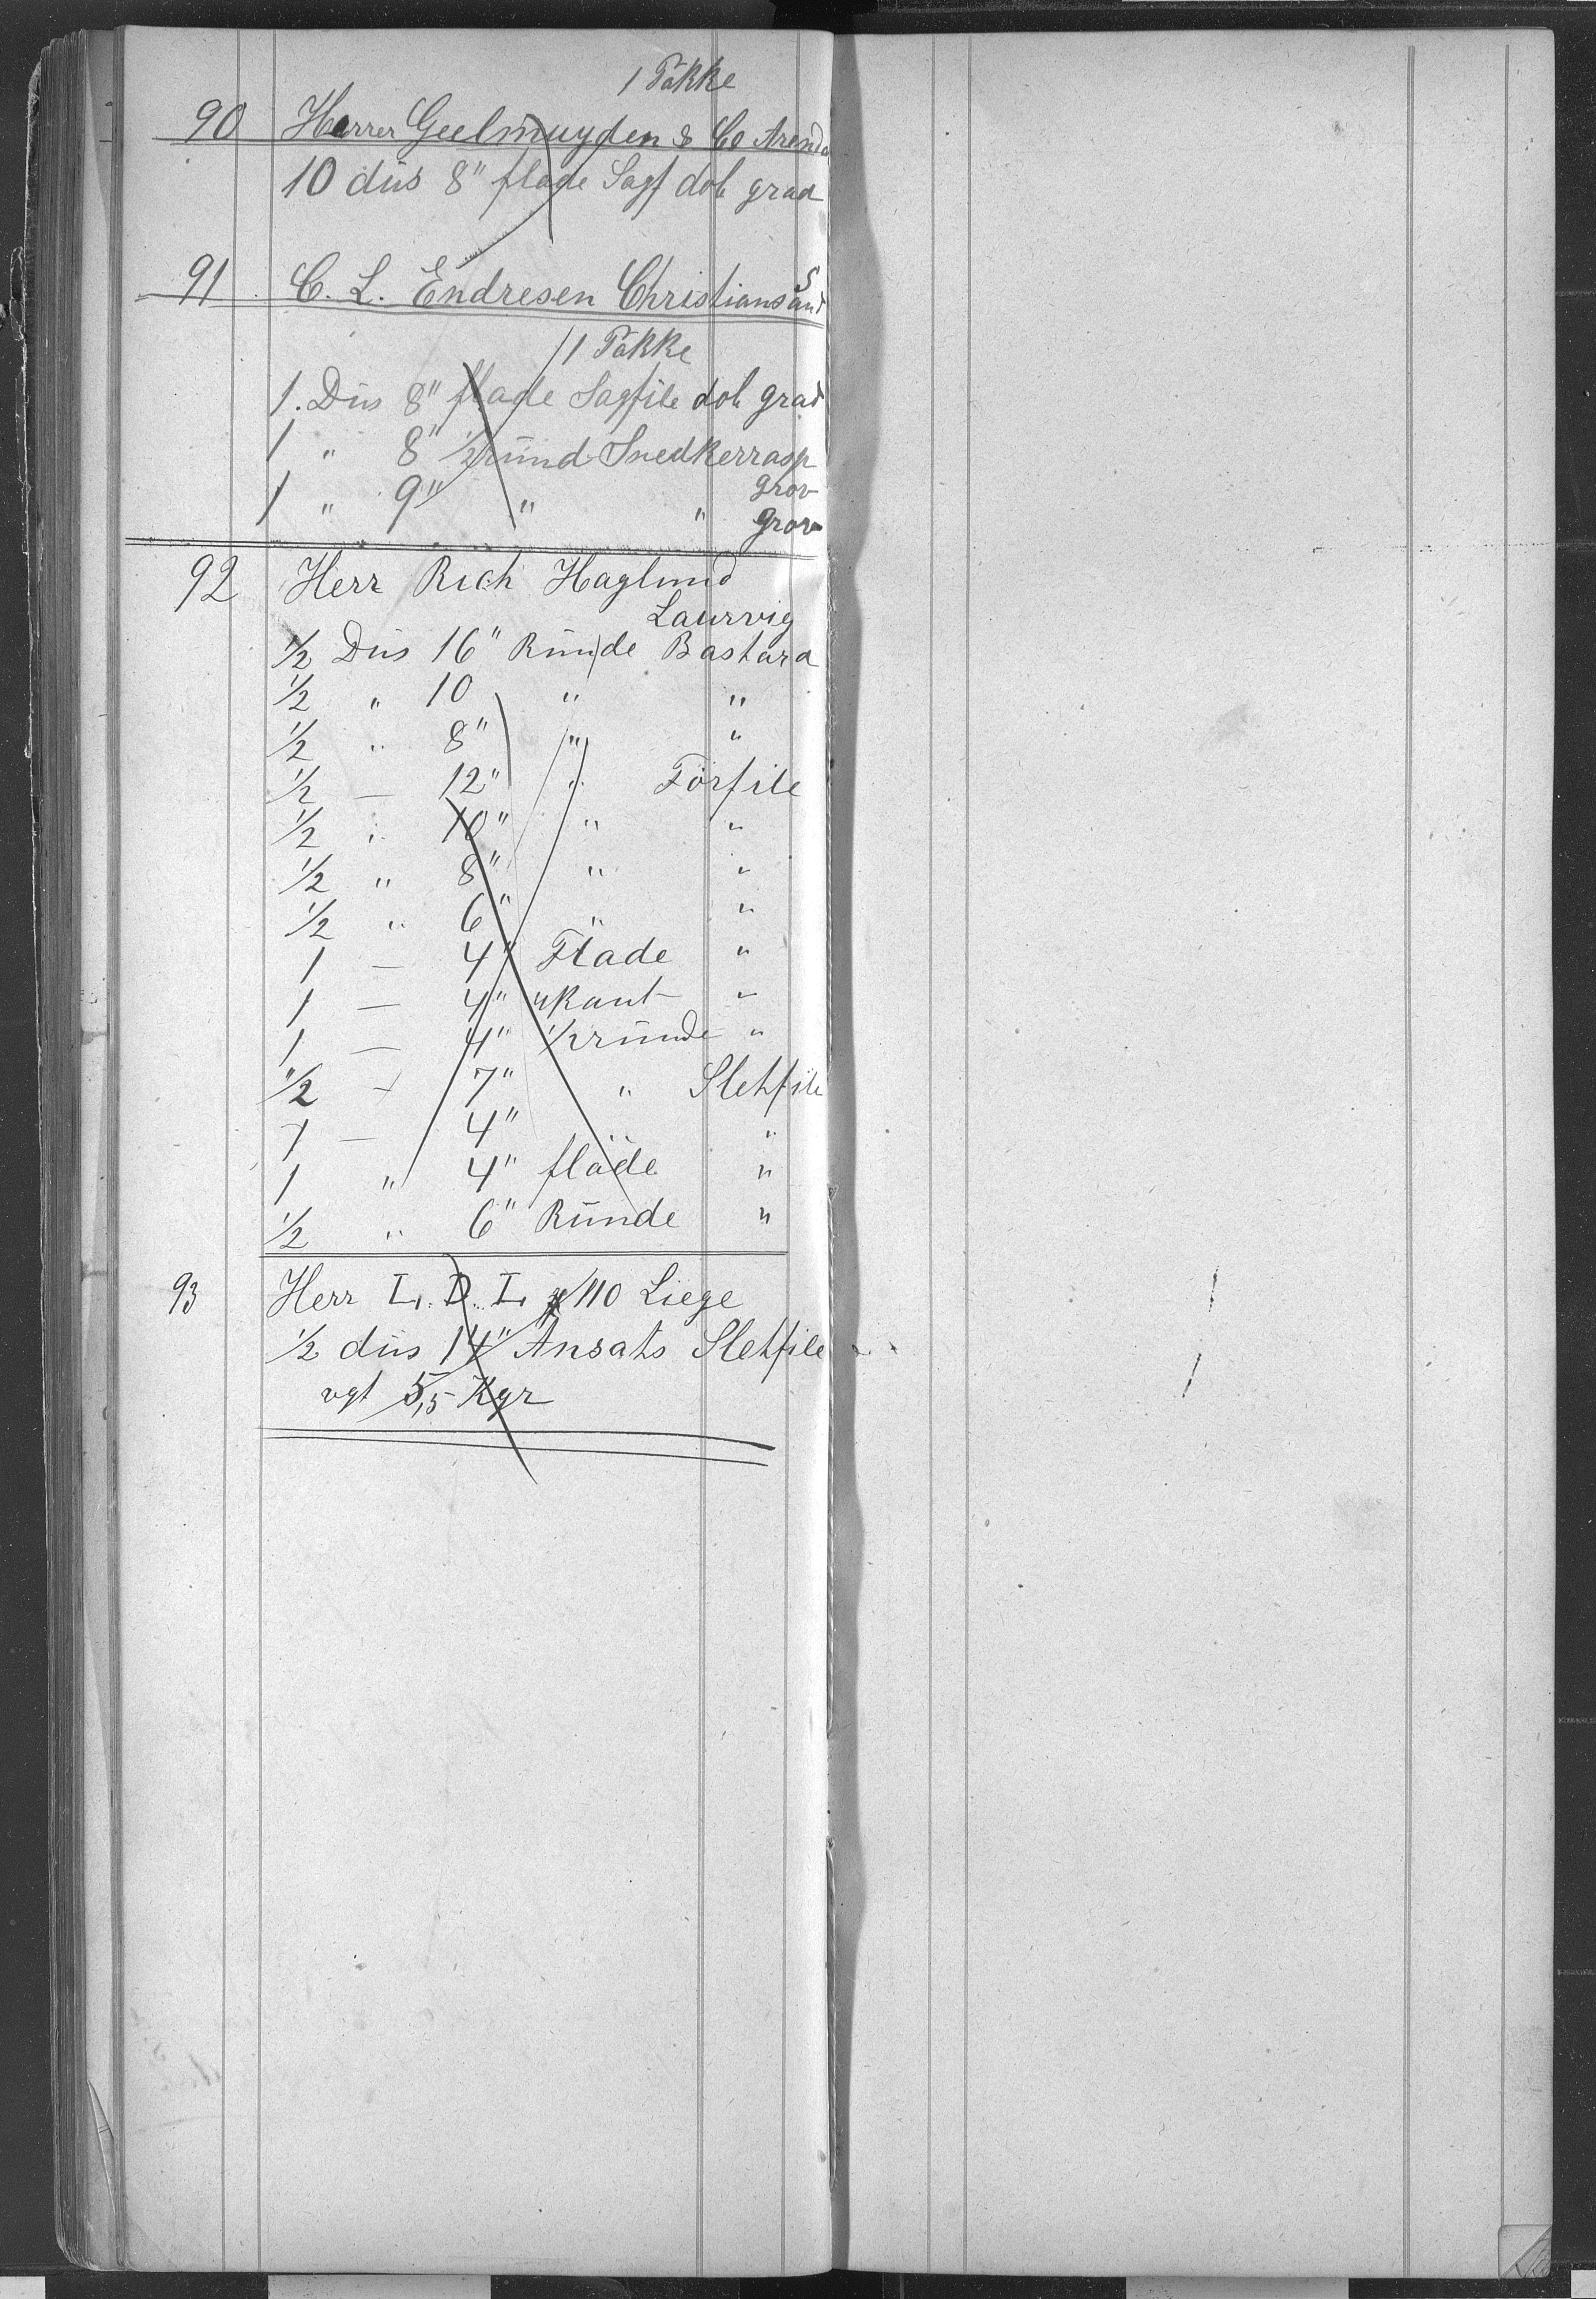 1 Påkke
90 Herrer Geelmuyden & Co Arenda
10 düs 8" flade Sagf dob grad
91 C. L. Endresen Christians Sand
1 Påkke
1. Düs 8" flade Sagfile dob grad
1 " 8" 1/2 ründ Snedkerrasp
grov
1 " 9" " " grov
92 Herr Rich Haglund
Laurvig
1/2 Düs 16" Ründe Bastard
1/2 " 10 " "
1/2 " 8" " "
1/2 — 12" " Förfile
1/2 " 10" " "
1/2 " 8" " "
1/2 " 6" " "
1 — 4" Flade "
1 — 4" 4kant "
1 — 4" 1/2 ründe "
1/2 — 7" " Sletfile
1 — 4" " "
1 " 4" flade "
1/2 " 6" Ründe "
93 Herr L. D. L. 110 Liege
1/2 düs 14" Ansats Sletfile
vgt 5,5 Kgr